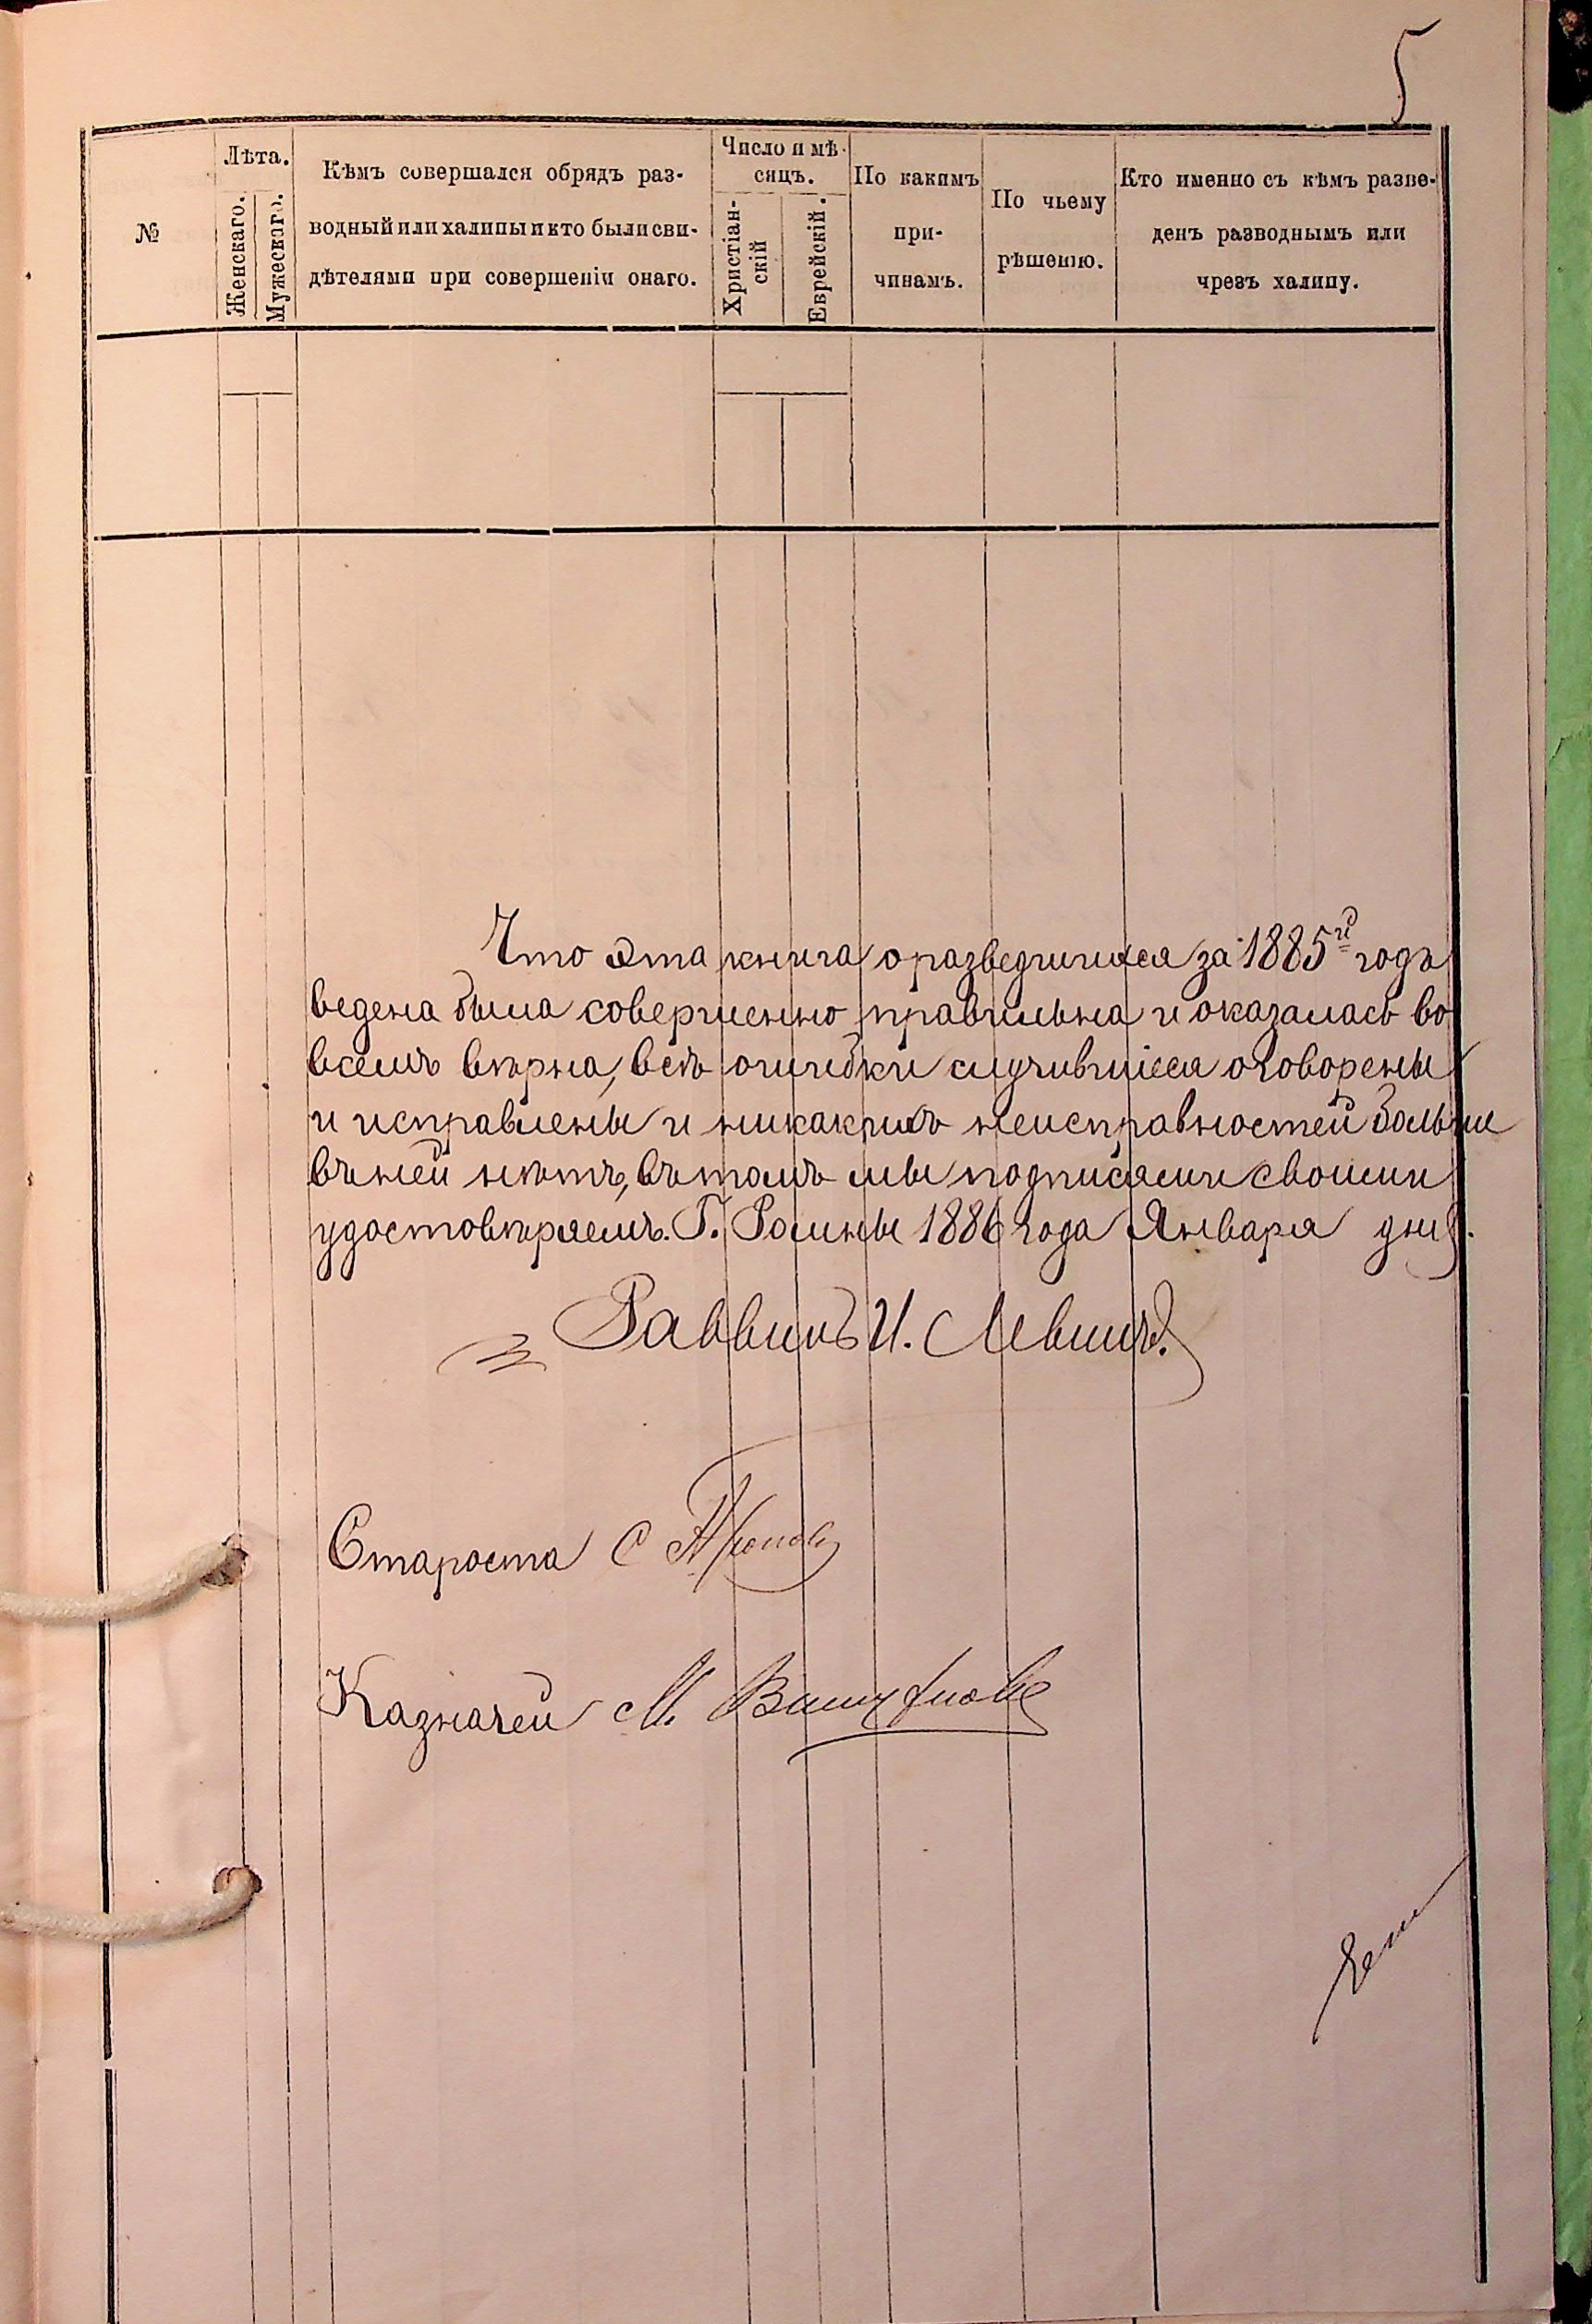 5
№
Лѣта.
Женскаго.
Мужескаго.
Кѣмъ совершался обрядъ раз-
водный или халицы и кто были сви-
дѣтелями при совершеніи онаго.
Число и мѣ-
сяцъ.
Христіан-
скій
Еврейскій.
По какимъ
при-
чинамъ.
По чьему
рѣшенію.
Кто именно съ кѣмъ разве-
денъ разводнымъ или
чрезъ халицу.
Что эта книга о разведшихся за 1885й годъ
ведена была совершенно правильна и оказалась во
всемъ вѣрна, всѣ ошибки случившіеся оговорены
и исправлены и никакихъ неисправностей больше
въ ней нѣтъ, въ томъ мы подписями своими
удостовѣряемъ. Г. Ромны 1886 года Января дня.
Раввинъ И. Левинъ.
Староста С
Казначей М.